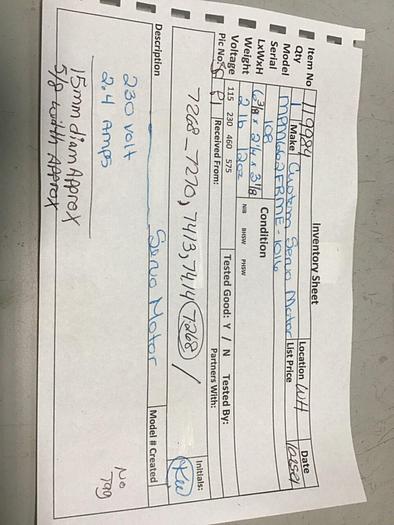 Inventory Sheet
Item No 119084 Location WH Date
Qty 1 Make Custom Servo Motor List Price
Model MPM662FRME-1016
Serial 108
LxWxH 6 3/8 x 2 1/4 x 3 1/8 Condition
Weight 2 lb 12oz NIB BHSW PHSW
Voltage 115 230 460 575 Tested Good: Y / N Tested By:
Pic No. Received From: Partners With:
7268-7270, 7413, 7414 (7268) / Initials:
Description Servo Motor Model # Created
230 volt
2.4 Amps
No
Tag
15mm diam Approx
5/8 width Approx